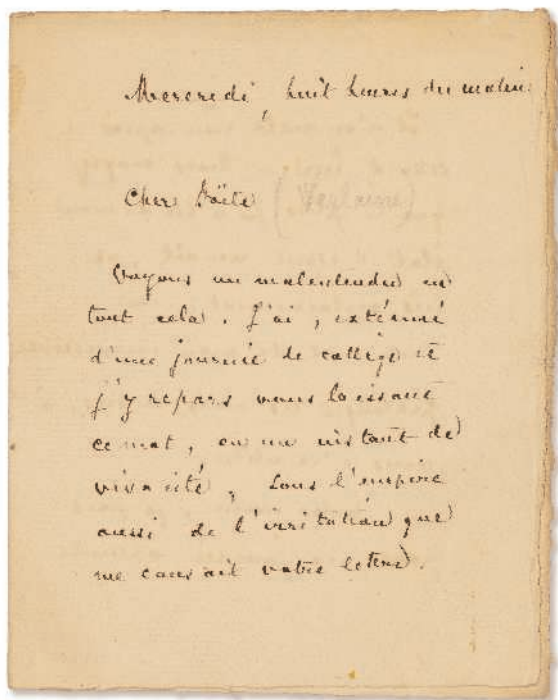 Mercredi, huit heures du matin.
Cher Poëte
(Verlaine)
Voyons un malentendu en
tout cela. J'ai, exténué
d'une journée de collège et
j'y repars vous laissant
ce mot, eu un instant de
vivacité, sous l'empire
aussi de l'irritation que
me causait votre lettre.